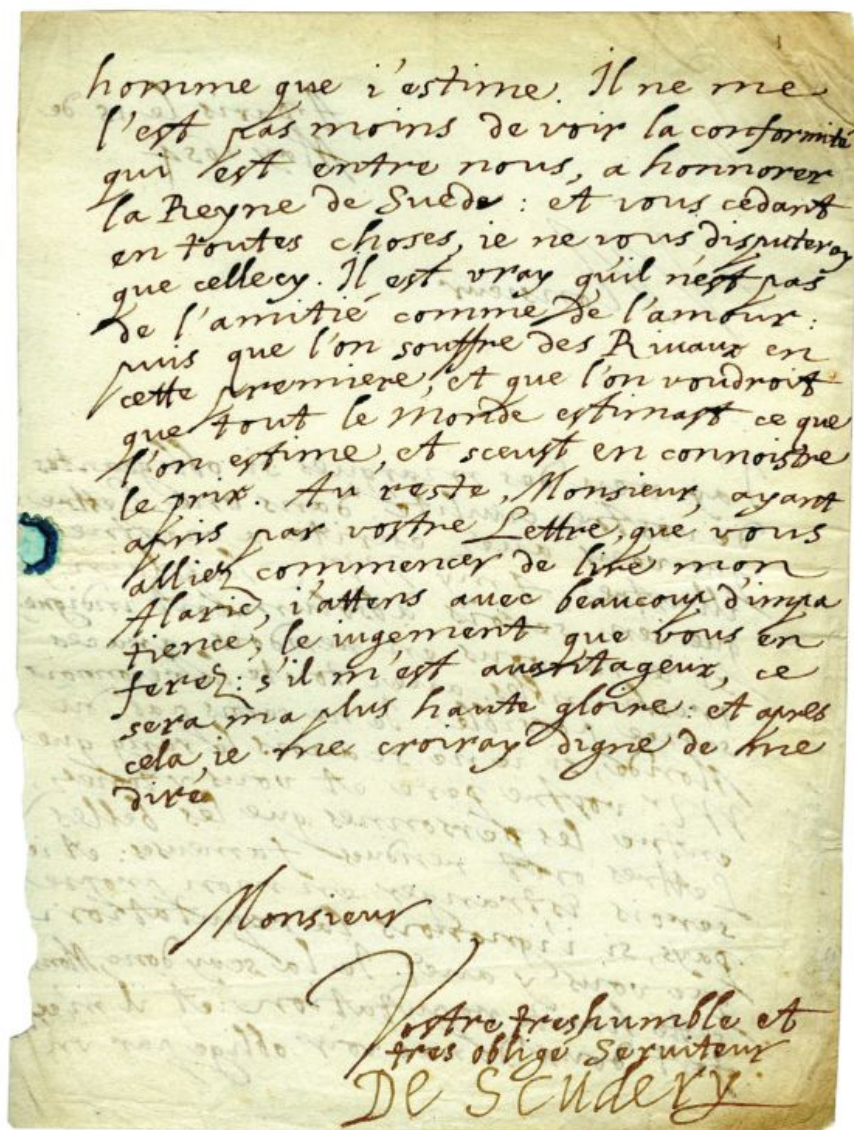 homme que i'estime. Il ne me
l'est pas moins de voir la conformité
qui est entre nous, a honnorer
la Reyne de Suede : et vous cedant
en toutes choses, ie ne vous disputeray
que cellecy. Il est vray qu'il n'est pas
de l'amitié comme de l'amour :
puis que l'on souffre des Riuaux en
cette premiere, et que l'on voudroit
que tout le monde estimast ce que
l'on estime, et sceust en connoistre
le prix. Au reste, Monsieur, ayant
apris par vostre Lettre, que vous
alliez commencer de lire mon
Alaric, i'attens auec beaucoup d'impa
tience, le iugement que vous en
ferez : s'il m'est auantageux, ce
sera ma plus haute gloire : et apres
cela, ie me croiray digne de me
dire
Monsieur
Vostre treshumble et
tres obligé Seruiteur
De Scudery.